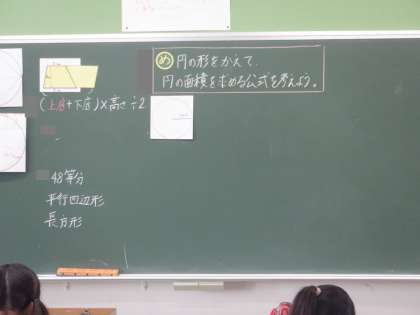 (上底+下底)×高さ÷2
48等分
平行四辺形
長方形
め 円の形をかえて、
円の面積を求める公式を考えよう。